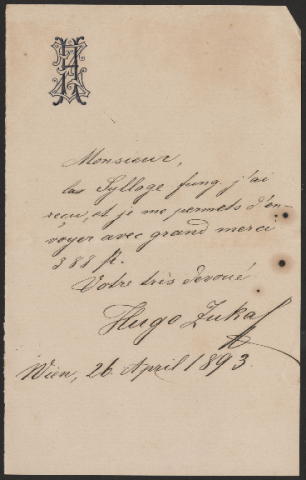 Monsieur,
las Syllage fung. j'ai
reçu, et je me permets d'en-
voyer avec grand merci
388 fr.
Votre très dévoué
Hugo Zukal
Wien, 26 April 1893.